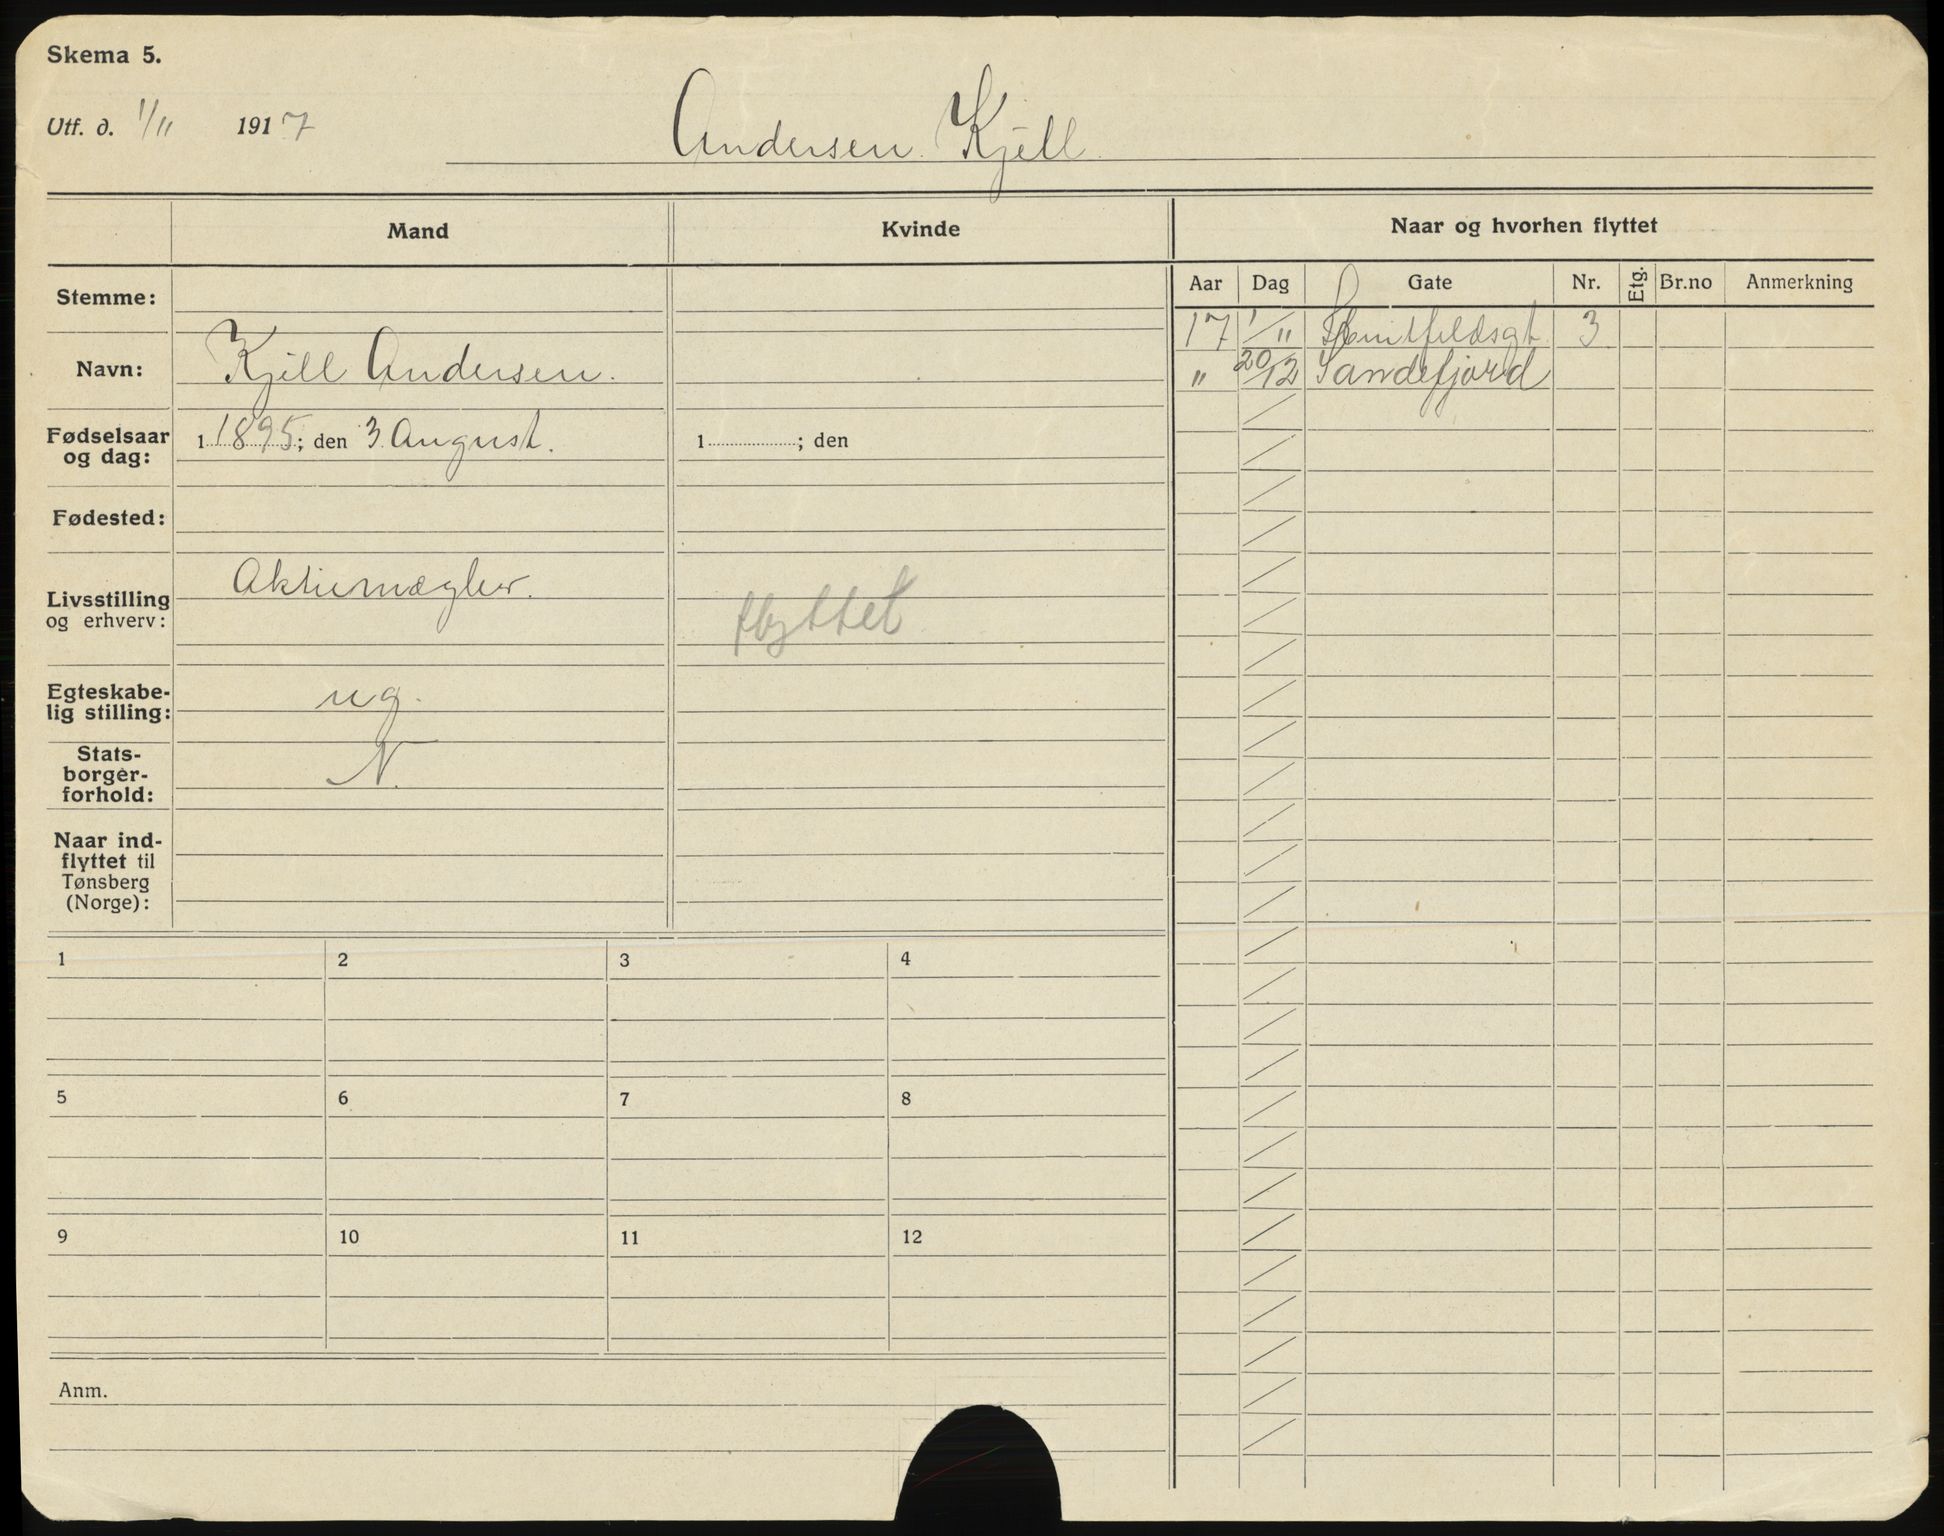 Skema 5.
Utf. d. 1/11 1917
Andersen Kjell
Mand Kvinde Naar og hvorhen flyttet
Aar Dag Gate Nr. Etg. Br.no Anmerkning
Stemme:
17 1/11 3
Navn: Kjell Andersen.
" 20/12 Sandefjord
Fødselsaar og dag: 1 1895; den 3 August. 1 ; den
Fødested:
Livsstilling og erhverv: Aktiemægler. flyttet
Egteskabe-
lig stilling: ug.
Stats-
borger-
forhold: N.
Naar ind-
flyttet til
Tønsberg
(Norge):
1 2 3 4
5 6 7 8
9 10 11 12
Anm.